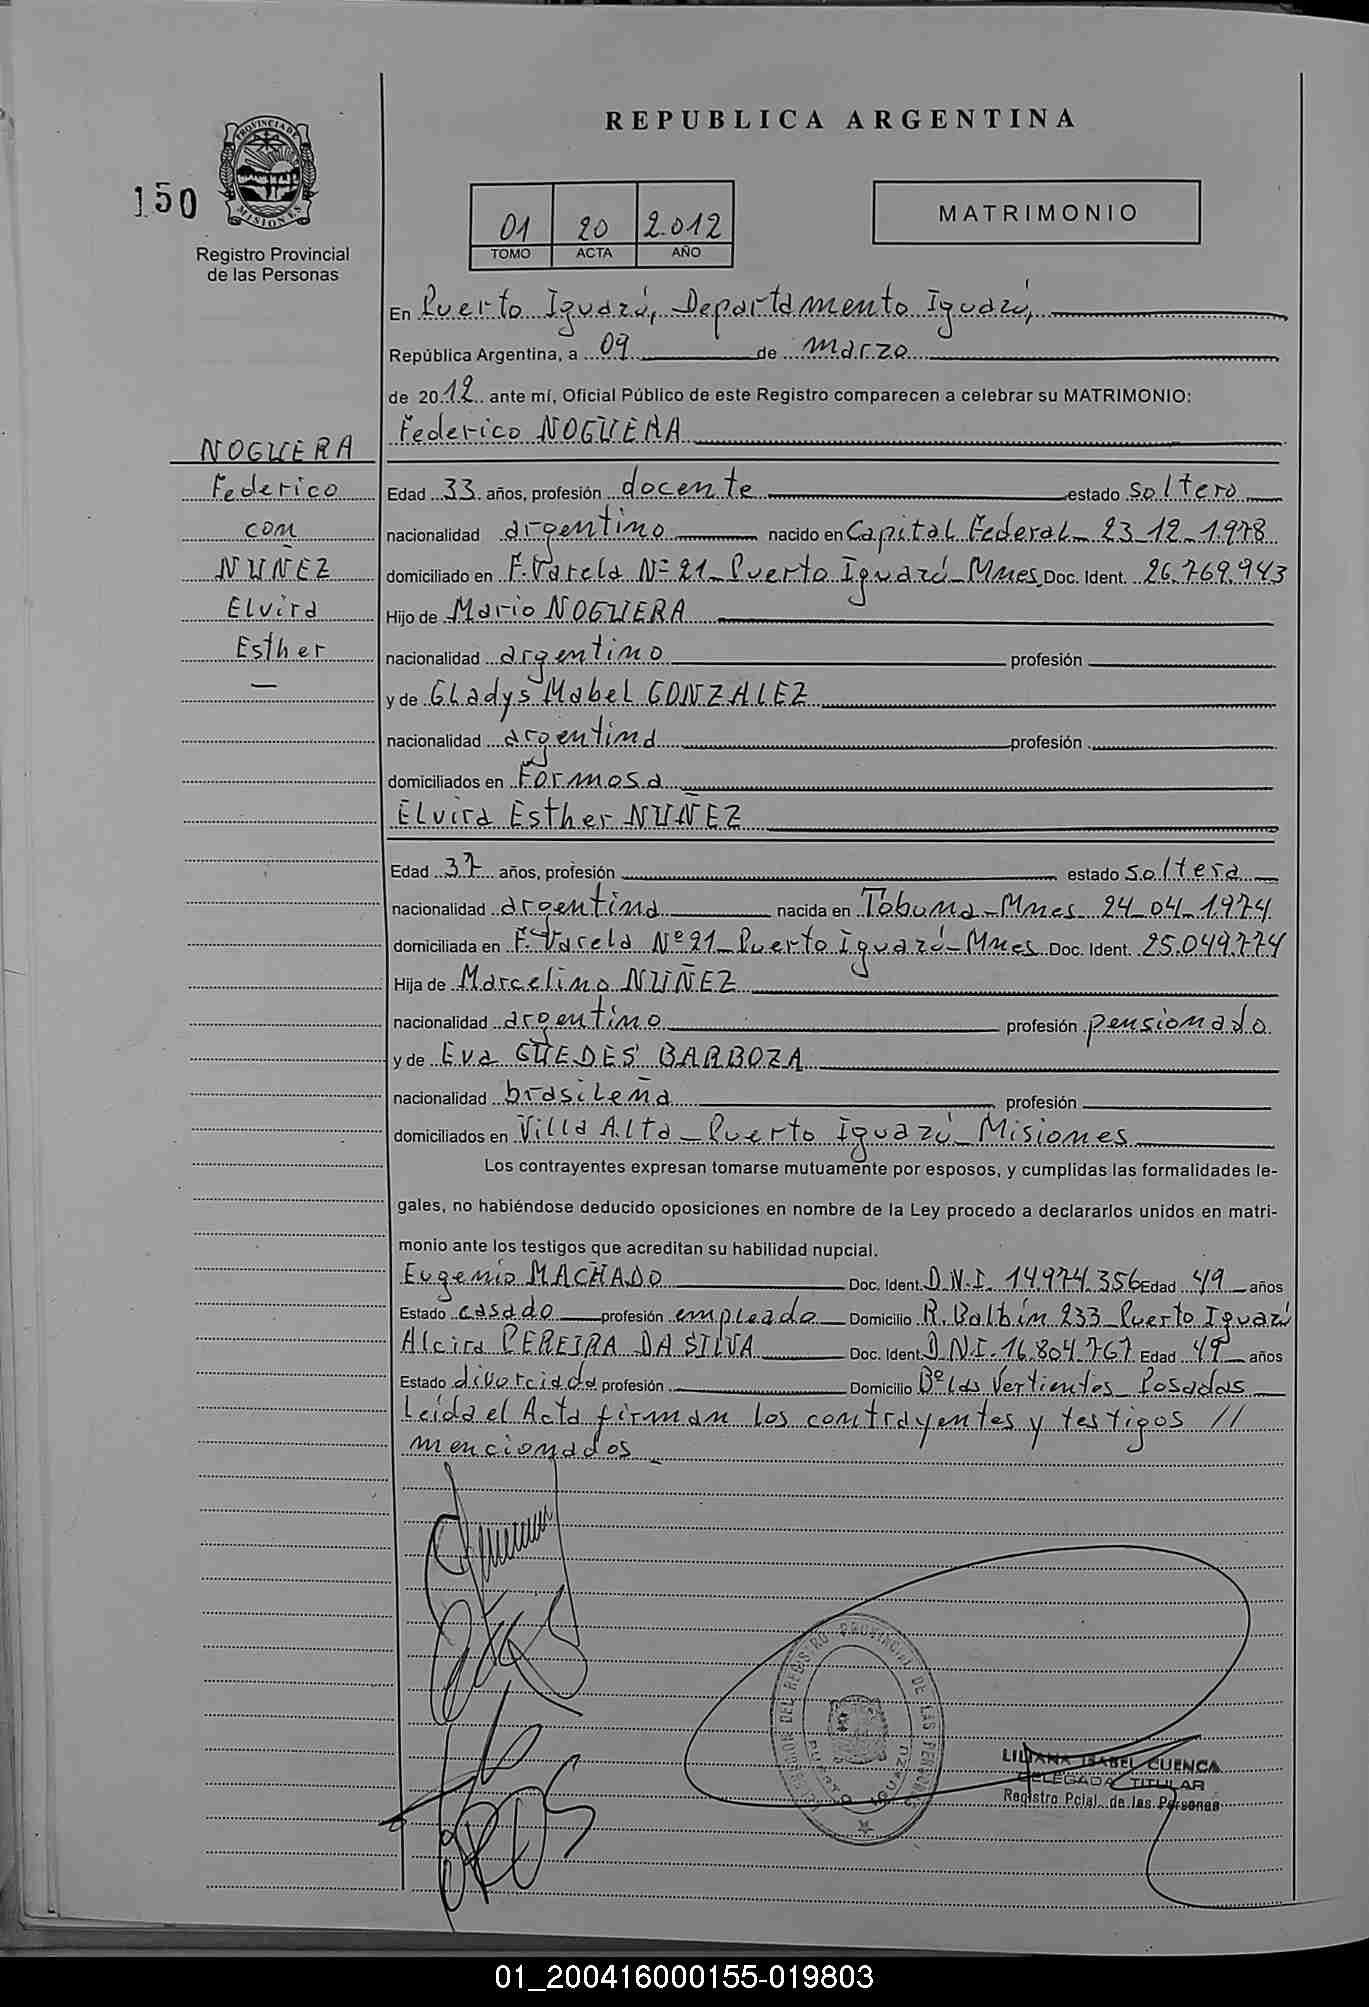 REPUBLICA ARGENTINA
150
PROVINCIA DE MISIONES
Registro Provincial
de las Personas
01 20 2.012
TOMO ACTA AÑO
MATRIMONIO
En Puerto Iguazú, Departamento Iguazú,
República Argentina, a 09 de marzo
de 2012 ante mí, Oficial Público de este Registro comparecen a celebrar su MATRIMONIO:
Federico NOGUERA
NOGUERA
Federico
con
NUÑEZ
Elvira
Esther
—
Edad 33 años, profesión docente estado soltero
nacionalidad argentino nacido en Capital Federal 23-12-1978
domiciliado en F. Varela Nº 21 - Puerto Iguazú - Mnes. Doc. Ident. 26.769.943
Hijo de Mario NOGUERA
nacionalidad argentino profesión
y de Gladys Mabel GONZALEZ
nacionalidad argentina profesión
domiciliados en Formosa
Elvira Esther NUÑEZ
Edad 37 años, profesión estado soltera
nacionalidad argentina nacida en Tobuna - Mnes 24-04-1974
domiciliada en F. Varela Nº 21 - Puerto Iguazú - Mnes Doc. Ident. 25.049.774
Hija de Marcelino NUÑEZ
nacionalidad argentino profesión pensionado
y de Eva GUEDES BARBOZA
nacionalidad brasileña profesión
domiciliados en Villa Alta - Puerto Iguazú - Misiones
Los contrayentes expresan tomarse mutuamente por esposos, y cumplidas las formalidades le-
gales, no habiéndose deducido oposiciones en nombre de la Ley procedo a declararlos unidos en matri-
monio ante los testigos que acreditan su habilidad nupcial.
Eugenio MACHADO Doc. Ident. D.N.I. 14.974.356 Edad 49 años
Estado casado profesión empleado Domicilio R. Balbín 233 - Puerto Iguazú
Alcira PEREIRA DA SILVA Doc. Ident. D.N.I. 16.804.767 Edad 49 años
Estado divorciada profesión Domicilio Bº las Vertientes - Posadas
Leída el Acta firman los contrayentes y testigos //
mencionados
DEL REGISTRO PROVINCIAL DE LAS PERSONAS
PUERTO IGUAZU
LILIANA ISABEL CUENCA
DELEGADA TITULAR
Registro Pcial. de las Personas
01_200416000155-019803